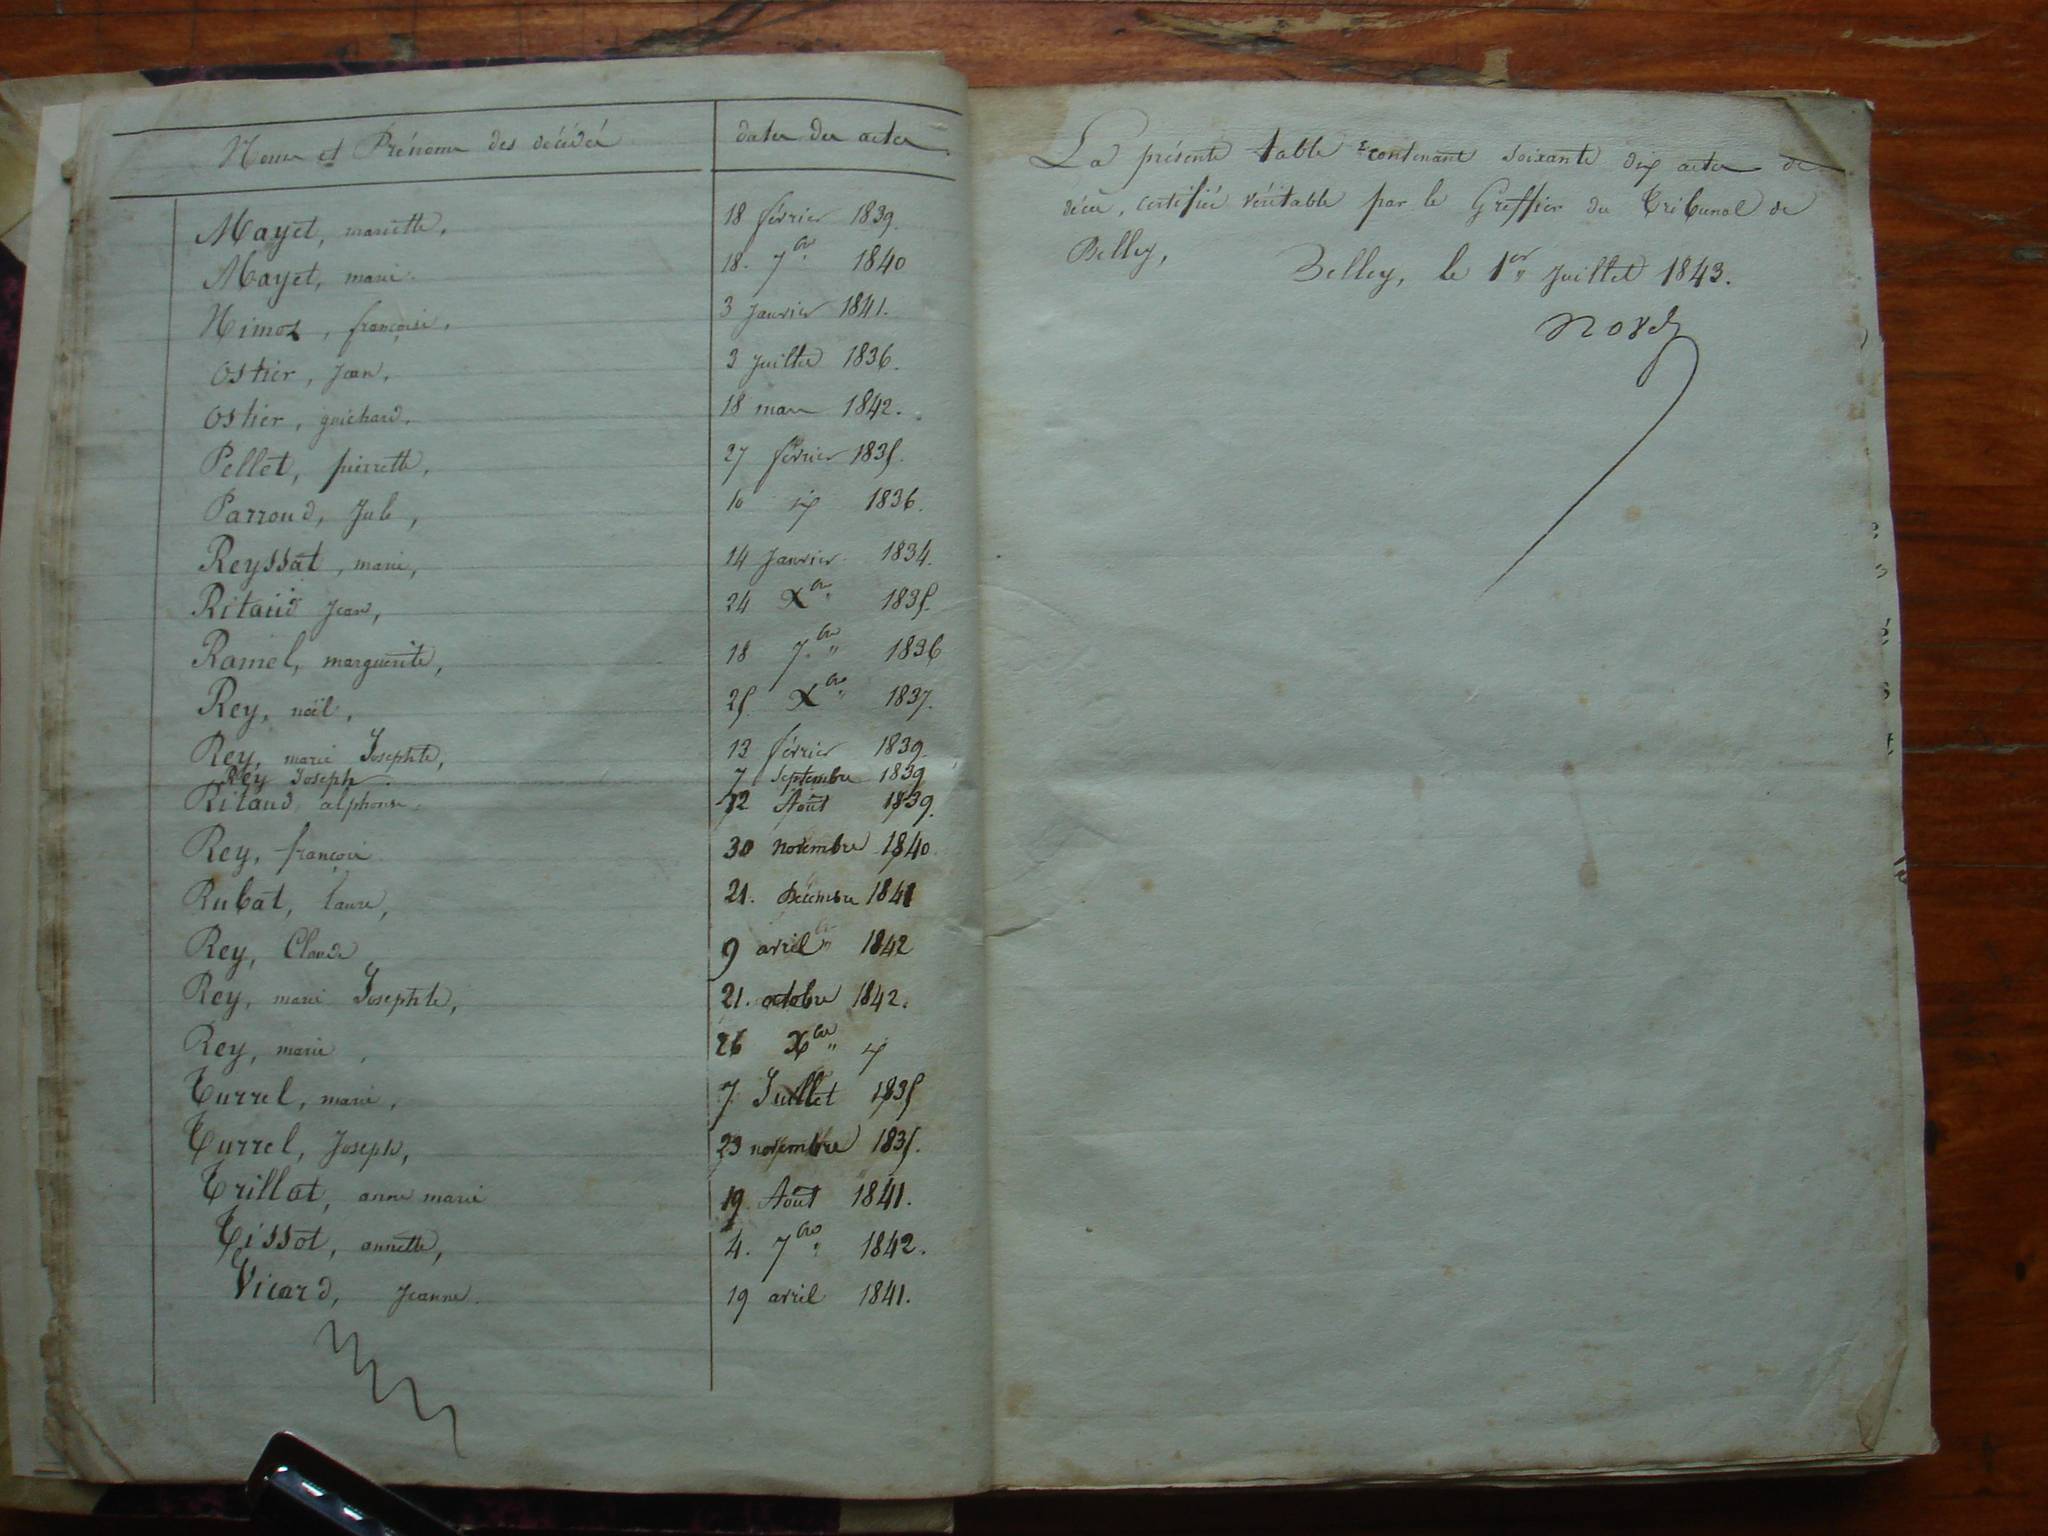 Noms et Prénoms des décédés dates des actes
Mayet, mariette, 18 février 1839.
Mayet, marie. 18. 7bre 1840
Nimoz, françoise, 3 Janvier 1841.
Ostier, Jean, 3 Juillet 1836.
Ostier, guichard, 18 mars 1842.
Pellet, pierrette, 27 février 1835.
Parroud, Jule, 10 id 1836.
Reyssat, marie, 14 Janvier 1834.
Ritaud Jean, 24 Xbre 1835.
Ramel, marguerite, 18 7bre 1836
Rey, noël, 25 Xbre 1837.
Rey, marie Josephte, 13 février 1839
Rey Joseph 7 septembre 1839
Ritaud, alphonse. 12 Août 1839.
Rey, françois 30 novembre 1840
Rubat, laure, 21. Décembre 1841
Rey, Claude 9 avril 1842
Rey, marie Josephte, 21. octobre 1842.
Rey, marie, 26 Xbre id
Turrel, marie, 7 Juillet 1835
Turrel, Joseph, 23 novembre 1835.
Trillat, anne marie 19 Août 1841.
Tissot, annette, 4. 7bre 1842.
Vicard, Jeanne. 19 avril 1841.
La présente table contenant soixante dix actes de
décès, certifiée véritable par le Greffier du Tribunal de
Belley,
Belley, le 1er Juillet 1843.